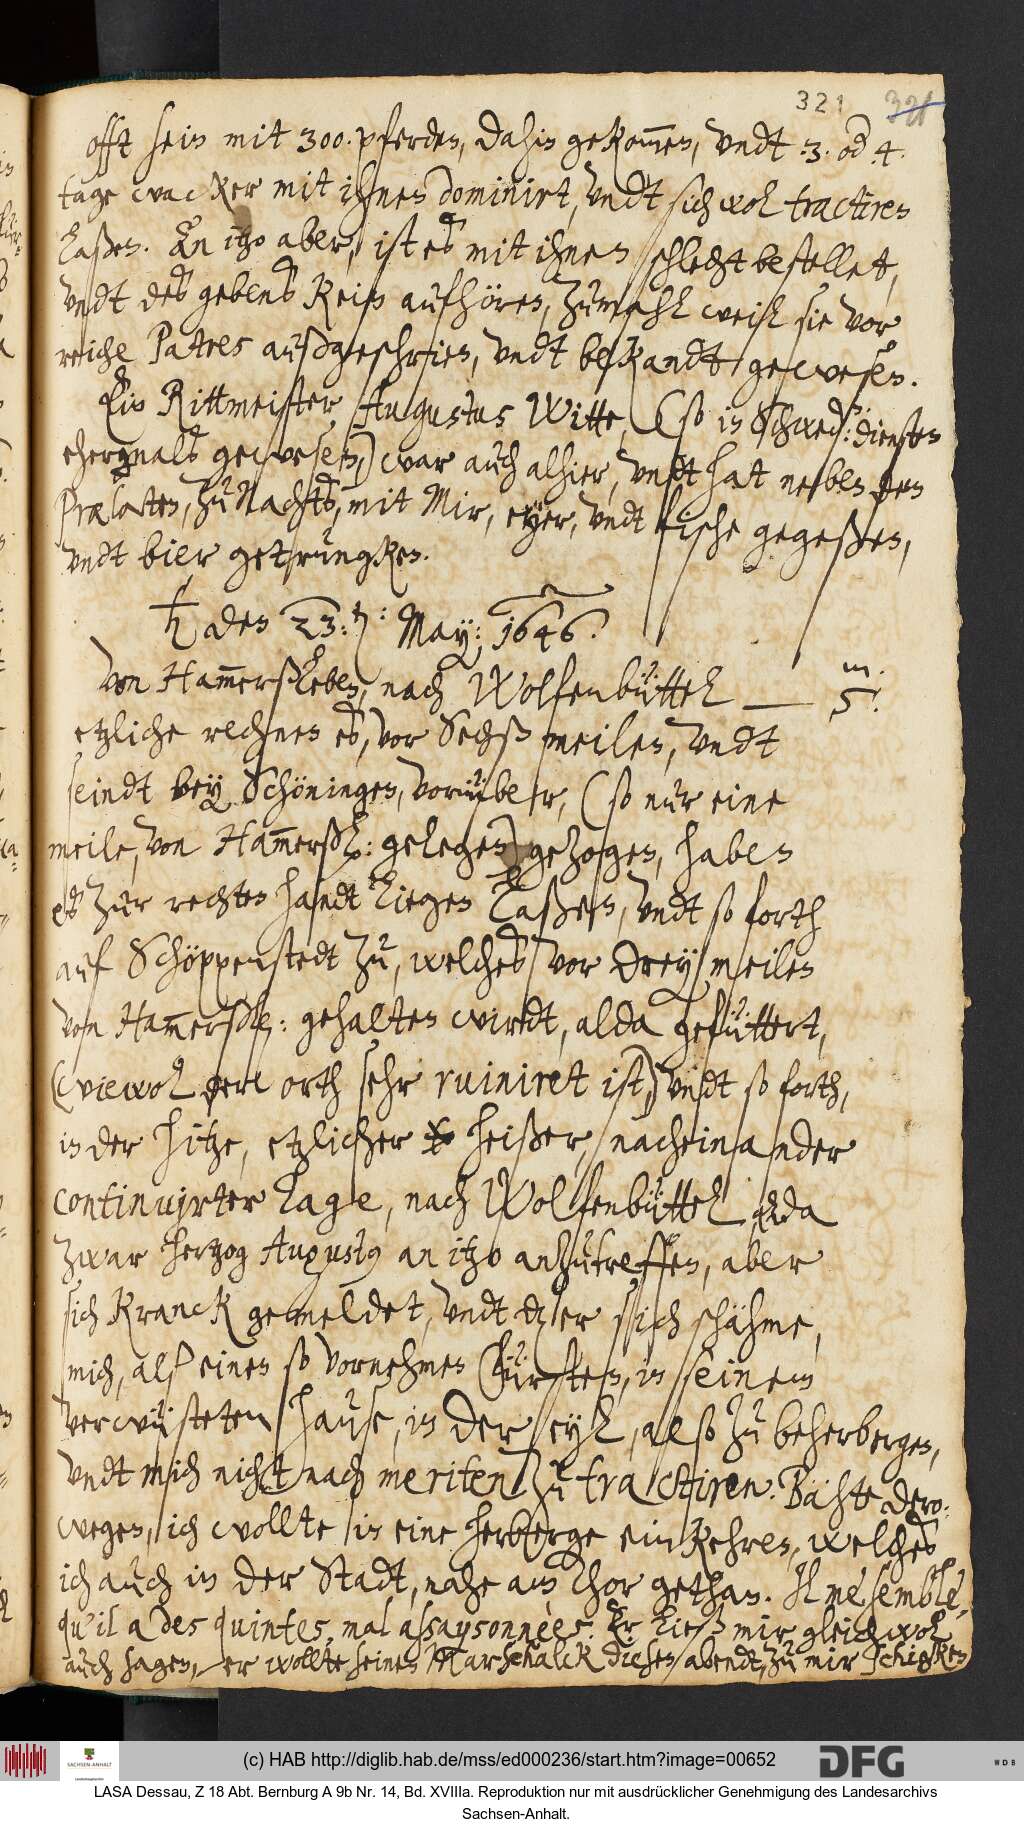 321 321
offt sein mit 300. pferden, dahin gekom̅en, vndt .3. od 4.
tage wacker mit ihnen dominirt, vndt sich wol tractiren
laßen. An itzo aber, ist es mit ihnen schlecht bestellet,
vndt des gebens kein aufhören, zumahl weil sie vor
reiche Patres außgeschrien, vndt bekandt gewesen.
Ein Rittmeister Augustus Witte, (so in Schwed: diensten
ehermals gewesen,) war auch alhier, vndt hat neben den
Prælaten, zu Nachts, mit Mir, eyer, vndt fische gegeßen,
vndt bier getruncken.
♄ den 23: May: 1646.
Von Ham̅erßleben, nach Wolfenbüttel — 5. m.
etzliche rechnen es, vor Sechß meilen, vndt
seindt bey Schöningen, vorüber, (so nur eine
meile, von Ham̅erßl: gelegen) gezogen, haben
es zur rechten handt liegen laßen, vndt so forth
auf Schöppenstedt zu, welches vor drey meilen
von Ham̅erßl: gehalten wirdt, alda gefüttert,
(wiewol der orth sehr ruiniret ist,) vndt so forth,
in der hitze, etzlicher heißer, nacheinander
continuirter Tage, nach Wolffenbüttel da
zwar hertzog Augustus an itzo anzutreffen, aber
sich kranck gemeldet, vndt er sich schähme,
mich, alß einen so vornehmen Fürsten, in seinem
verwüsteten hause, in der eyl, alß zu beherbergen,
vndt mich nicht nach meriten zu tractiren. Bähte dero-
wegen, ich wollte in eine herberge einkehren, welches
ich auch in der Stadt, nahe am Thor gethan. Il me semble,
qu'il a des quintes, mal assaysonnèes. Er ließ mir gleichwol
auch sagen, er wollte seinen Marschalck diesen abendt, zu mir schicken
(c) HAB http://diglib.hab.de/mss/ed000236/start.htm?image=00652
SACHSEN-ANHALT
DFG
WDB
LASA Dessau, Z 18 Abt. Bernburg A 9b Nr. 14, Bd. XVIIIa. Reproduktion nur mit ausdrücklicher Genehmigung des Landesarchivs
Sachsen-Anhalt.